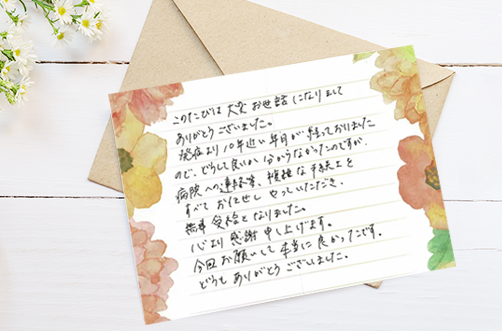 このたびは大変お世話になりまして
ありがとうございました。
発症より10年近い年月が経っておりました
ので、どうして良いか分からなかったのですが、
病院への連絡等、複雑な手続きを
すべてお任せしやっていただき、
無事受給となりました。
心より感謝申し上げます。
今回お願いして本当に良かったです。
どうもありがとうございました。